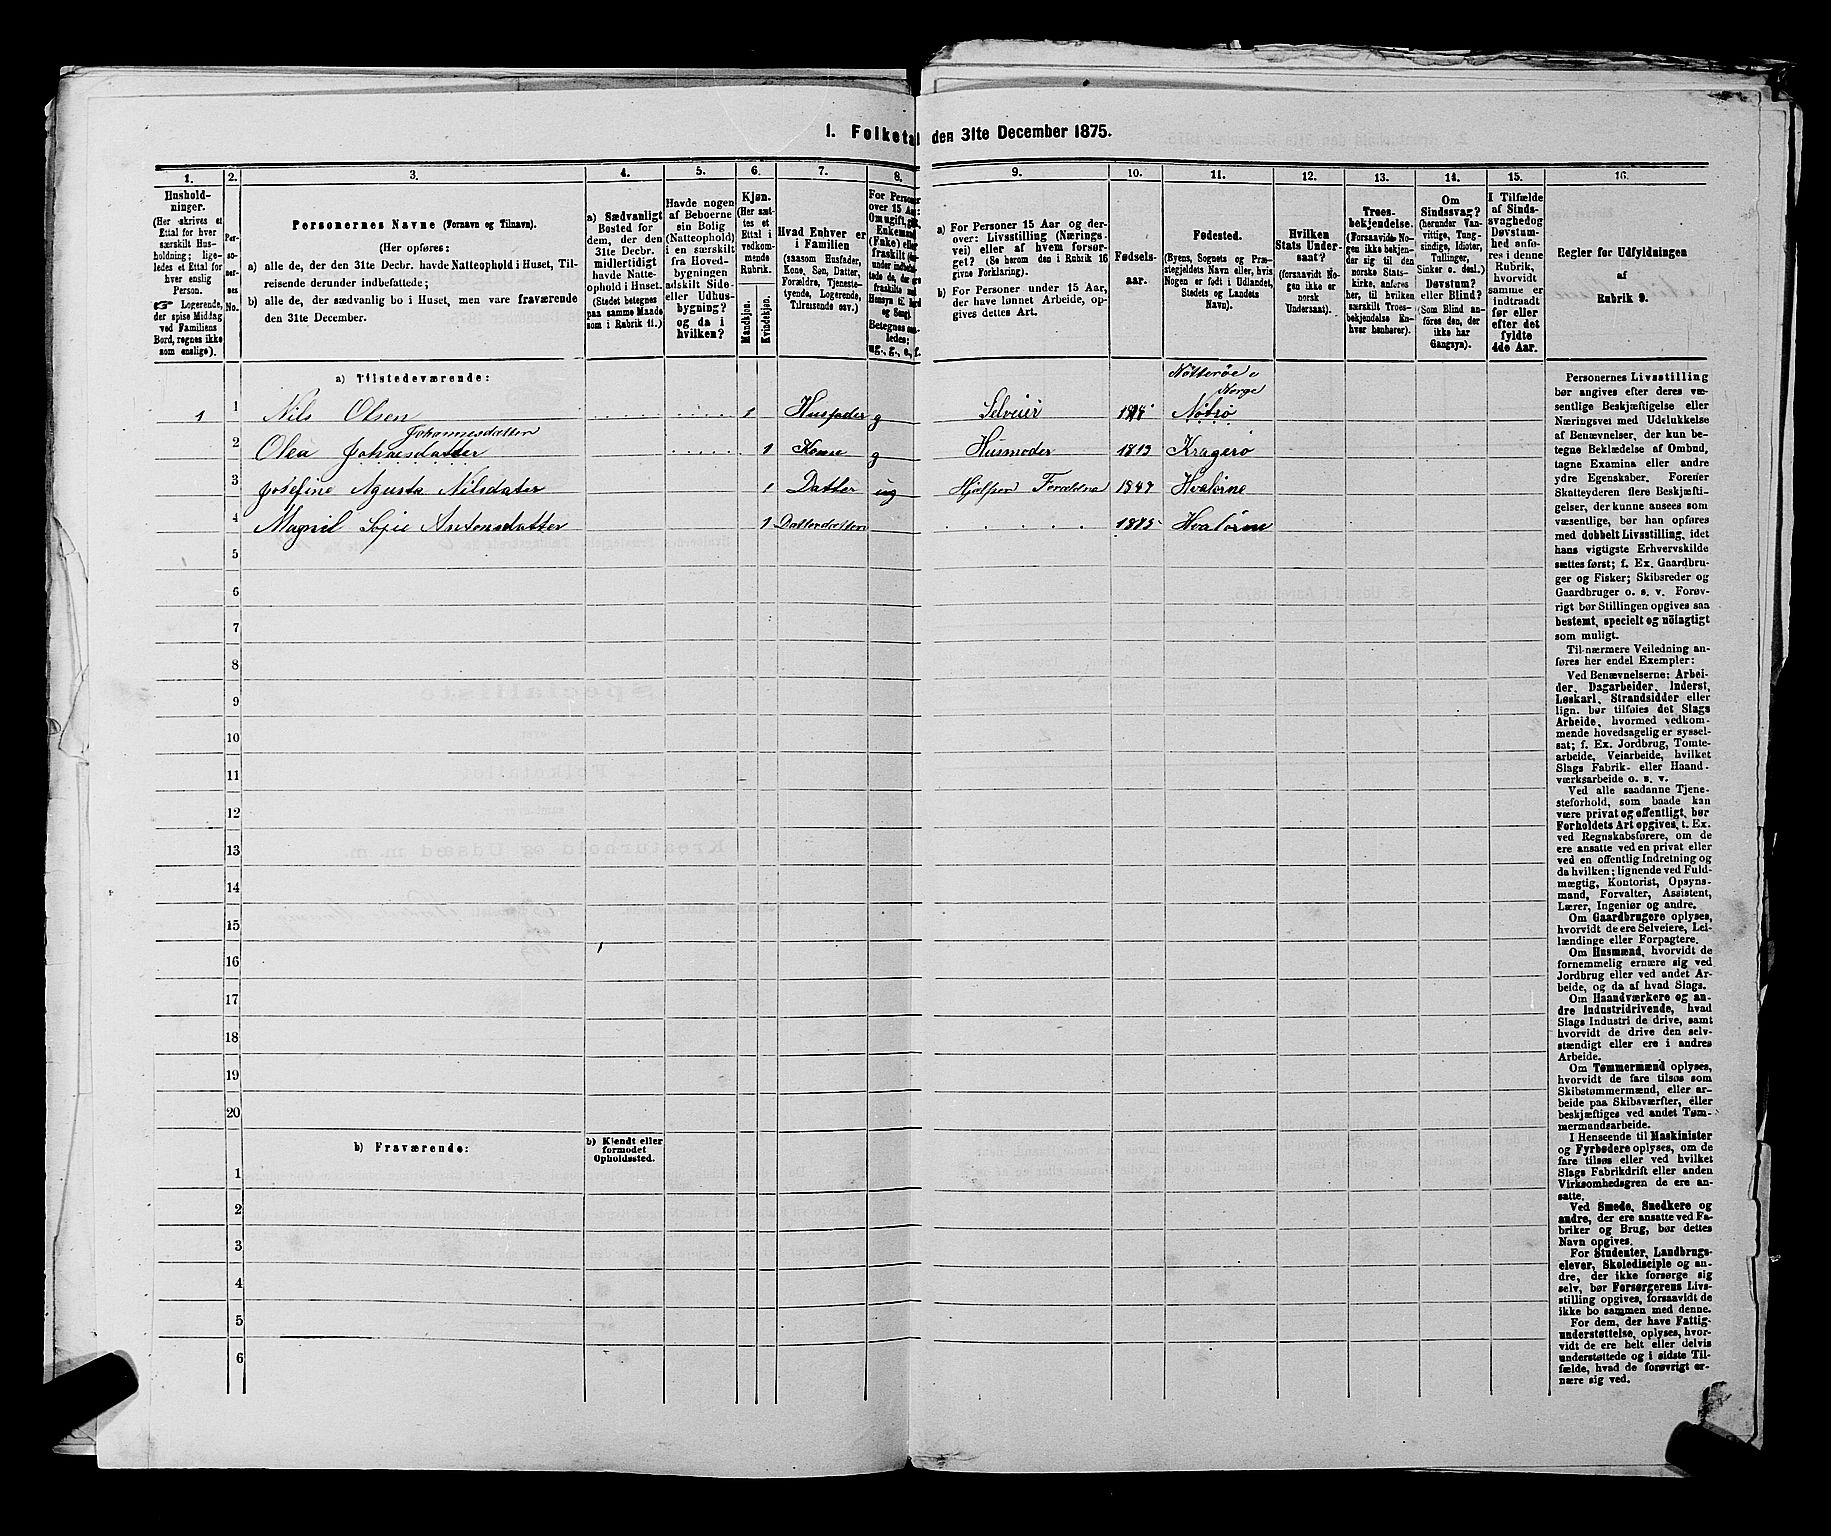 1. Folketal den 31te December 1875.
1. 2. 3. 4. 5. 6. 7. 8. 9. 10. 11. 12. 13. 14. 15. 16.
Hushold-
ninger.
(Her skrives et
Ettal for hver
særskilt Hus-
holdning; lige-
ledes et Ettal for
hver enslig
Person.
☛ Logerende,
der spise Middag
ved Familiens
Bord, regnes ikke
som enslige).
Per-
so-
ner-
nes
No.
Personernes Navne (Fornavn og Tilnavn).
(Her opføres:
a) alle de, der den 31te Decbr. havde Natteophold i Huset, Til-
reisende derunder indbefattede;
b) alle de, der sædvanlig bo i Huset, men vare fraværende
den 31te December.
a) Sædvanligt
Bosted for
dem, der den
31te Decbr.
midlertidigt
havde Natte-
ophold i Huset.
(Stedet betegnes
paa samme Maade
som i Rubrik 11.)
Havde nogen
af Beboerne
sin Bolig
(Natteophold)
i en særskilt
fra Hoved-
bygningen
adskilt Side-
eller Udhus-
bygning?
og da i
hvilken?
Kjøn.
(Her sæt-
tes et
Ettal i
vedkom-
mende
Rubrik.
Mandkjøn.
Kvindekjøn.
Hvad Enhver er
i Familien
(saasom Husfader,
Kone, Søn, Datter,
Forældre, Tjeneste-
tyende, Logerende,
Tilreisende osv.)
For Personer
over 15 Aar:
Om ugift, gift,
Enkemand
(Enke) eller
fraskilt
under indbefat-
tede de, der ere
fraskilte med
Hensyn til Bord
og Seng).
Betegnes saa-
ledes:
ug., g., e., f.
a) For Personer 15 Aar og der-
over: Livsstilling (Nærings-
vei) eller af hvem forsør-
get? (Se herom den i Rubrik 16
givne Forklaring).
b) For Personer under 15 Aar,
der have lønnet Arbeide, op-
gives dettes Art.
Fødsels-
aar.
Fødested.
(Byens, Sognets og Præ-
stegjeldets Navn eller, hvis
Nogen er født i Udlandet,
Stedets og Landets
Navn).
Hvilken
Stats Under-
saat?
(forsaavidt No-
gen ikke er
norsk
Undersaat).
Troes-
bekjendelse.
(Forsaavidt No-
gen ikke bekjen-
der sig til den
norske Stats-
kirke, anføres
her, til hvilken
særskilt Troes-
bekjendelse En-
hver henhører).
Om
Sindssvag?
(herunder Van-
vittige, Tung-
sindige, Idioter,
Tullinger,
Sinker o. desl.)
Døvstum?
eller Blind?
(Som Blind an-
føres den, der
ikke har
Gangsyn).
I Tilfælde
af Sinds-
svaghed og
Døvstum-
hed anfø-
res i denne
Rubrik,
hvorvidt
samme er
indtraadt
før eller
efter det
fyldte
4de Aar.
Regler for Udfyldningen
af
Rubrik 9.
a) Tilstedeværende:
Nötteröe
Norge
1 1 Nils Olsen 1 Husfader g Selveier Nötrö
Johannesdatter
2 Olea Johnesdatter 1 Kone g Husmoder 1813 Kragerö
3 Josefine Agusta Nilsdater 1 Datter ug Hjelper Foreldrne 1847 Hvalörne
4 Magnil Sofie Antonsdatter 1 Datterdatter 1875 Hvalörne
5
6
7
8
9
10
11
12
13
14
15
16
17
18
19
20
b) Fraværende:
b) Kjendt eller
formodet
Opholdssted.
1
2
3
4
5
6
Personernes Livsstilling
bør angives efter deres væ-
sentlige Beskjæftigelse eller
Næringsvei med Udelukkelse
af Benævnelser, der kun be-
tegne Beklædelse af Ombud,
tagne Examina eller andre
ydre Egenskaber. Forener
Skatteyderen flere Beskjæfti-
gelser, der kunne ansees som
væsentlige, bør han opføres
med dobbelt Livsstilling, idet
hans vigtigste Erhvervskilde
sættes først; f. Ex. Gaardbru-
ger og Fisker; Skibsreder og
Gaardbruger o. s. v. Forøv-
rigt bør Stillingen opgives saa
bestemt, specielt og nöiagtigt
som muligt.
Til nærmere Veiledning an-
føres her endel Exempler:
Ved Benævnelserne: Arbei-
der, Dagarbeider, Inderst,
Løskarl, Strandsidder eller
lign. bør tilføies det Slags
Arbeide, hvormed vedkom-
mende hovedsagelig er syssel-
sat; f. Ex. Jordbrug, Tomte-
arbeide, Veiarbeide, hvilket
Slags Fabrik- eller Haand-
værksarbeide o. s. v.
Ved alle saadanne Tjene-
steforhold, som baade kan
være privat og offentligt, bør
Forholdets Art opgives, t. Ex.
ved Regnskabsførere, om de
ere ansatte ved en privat eller
ved en offentlig Indretning og
da hvilken; lignende ved Fuld-
mægtig, Kontorist, Opsyns-
mand, Forvalter, Assistent,
Lærer, Ingeniør og andre.
Om Gaardbrugere oplyses,
hvorvidt de ere Selveiere, Lei-
lændinge eller Forpagtere.
Om Husmænd, hvorvidt de
fornemmelig ernære sig ved
Jordbrug eller ved andet Ar-
beide, og da af hvad Slags.
Om Haandværkere og an-
dre Industridrivende, hvad
Slags Industri de drive, samt
hvorvidt de drive den selv-
stændigt eller ere i andres
Arbeide.
Om Tømmermænd oplyses,
hvorvidt de fare tilsøs som
Skibstømmermænd, eller ar-
beide paa Skibsværfter, eller
beskjæftiges ved andet Tøm-
mermandsarbeide.
I Henseende til Maskinister
og Fyrbødere oplyses, om de
fare tilsøs eller ved hvilket
Slags Fabrikdrift eller anden
Virksomhedsgren de ere an-
satte.
Ved Smede, Snedkere og
andre, der ere ansatte ved Fa-
briker og Brug, bør dettes
Navn opgives.
For Studenter, Landbrugs-
elever, Skoledisciple og an-
dre, der ikke forsørge sig
selv, bør Forsørgerens Livs-
stilling opgives, forsaavidt de
ikke bo sammen med denne.
For dem, der have Fattig-
understøttelse, oplyses, hvor-
vidt de ere helt eller delvis
understøttede og i sidste Til-
fælde, hvad de forøvrigt er-
nære sig ved.